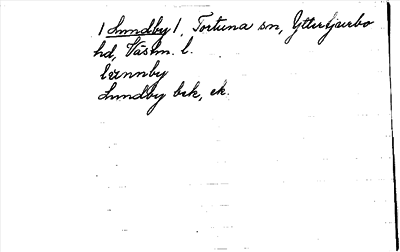 /Lundby/, Tortuna sn, Yttertjurbo
hd, Västm. l.
lünnby
Lundby bek, ek.